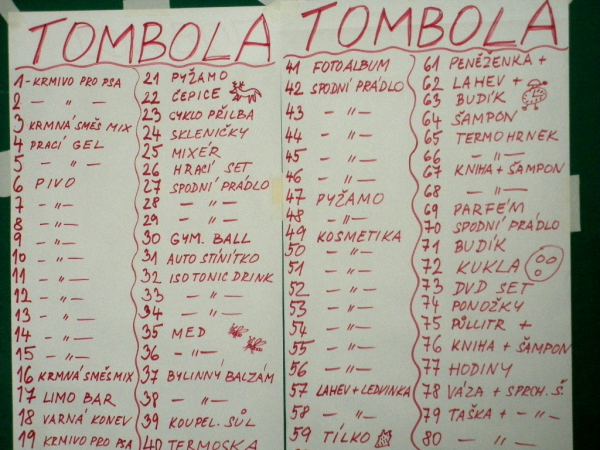 TOMBOLA
1 - KRMIVO PRO PSA
2 — " —
3 KRMNÁ SMĚS MIX
4 PRACÍ GEL
5 — " —
6 PIVO
7 — " —
8 — " —
9 — " —
10 — " —
11 — " —
12 — " —
13 — " —
14 — " —
15 — " —
16 KRMNÁ SMĚS MIX
17 LIMO BAR
18 VARNÁ KONEV
19 KRMIVO PRO PSA
21 PYŽAMO
22 ČEPICE
23 CYKLO PŘILBA
24 SKLENIČKY
25 MIXÉR
26 HRACÍ SET
27 SPODNÍ PRÁDLO
28 — " —
29 — " —
30 GYM. BALL
31 AUTO STÍNÍTKO
32 ISOTONIC DRINK
33 — " —
34 — " —
35 MED
36 — " —
37 BYLINNÝ BALZÁM
38 — " —
39 KOUPEL. SŮL
40 TERMOSKA
TOMBOLA
41 FOTOALBUM
42 SPODNÍ PRÁDLO
43 — " —
44 — " —
45 — " —
46 — " —
47 PYŽAMO
48 — " —
49 KOSMETIKA
50 — " —
51 — " —
52 — " —
53 — " —
54 — " —
55 — " —
56 — " —
57 LAHEV + LEDVINKA
58 — " —
59 TÍLKO
61 PENĚŽENKA +
62 LAHEV +
63 BUDÍK
64 ŠAMPON
65 TERMOHRNEK
66 — " —
67 KNIHA + ŠAMPON
68 — " —
69 PARFÉM
70 SPODNÍ PRÁDLO
71 BUDÍK
72 KUKLA
73 DVD SET
74 PONOŽKY
75 PŮLLITR +
76 KNIHA + ŠAMPON
77 HODINY
78 VÁZA + SPRCH. Š.
79 TAŠKA + — " —
80 — " —